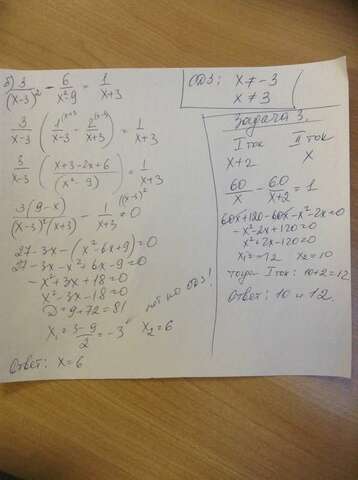 б) 3/(x-3)² - 6/(x²-9) = 1/(x+3)
3/(x-3) (1^(x+3/(x-3) - 2^(x-3)/(x+3)) = 1/(x+3)
3/(x-3) ((x+3-2x+6)/(x²-9)) = 1/(x+3)
3(9-x)/((x-3)²(x+3)) - 1^((x-3)²/(x+3) = 0
27-3x-(x²-6x+9)=0
27-3x-x²+6x-9=0
-x²+3x+18=0
x²-3x-18=0
D=9+72=81
x₁=(3-9)/2=-3 x₂=6
нет по ОДЗ!
Ответ: x=6
ОДЗ: x≠-3
x≠3
Задача 3.
I ток II ток
x+2 x
60/x - 60/(x+2) = 1
60x+120-60x-x²-2x=0
-x²-2x+120=0
x²+2x-120=0
x₁=-12 x₂=10
тогда I ток: 10+2=12
Ответ: 10 и 12.